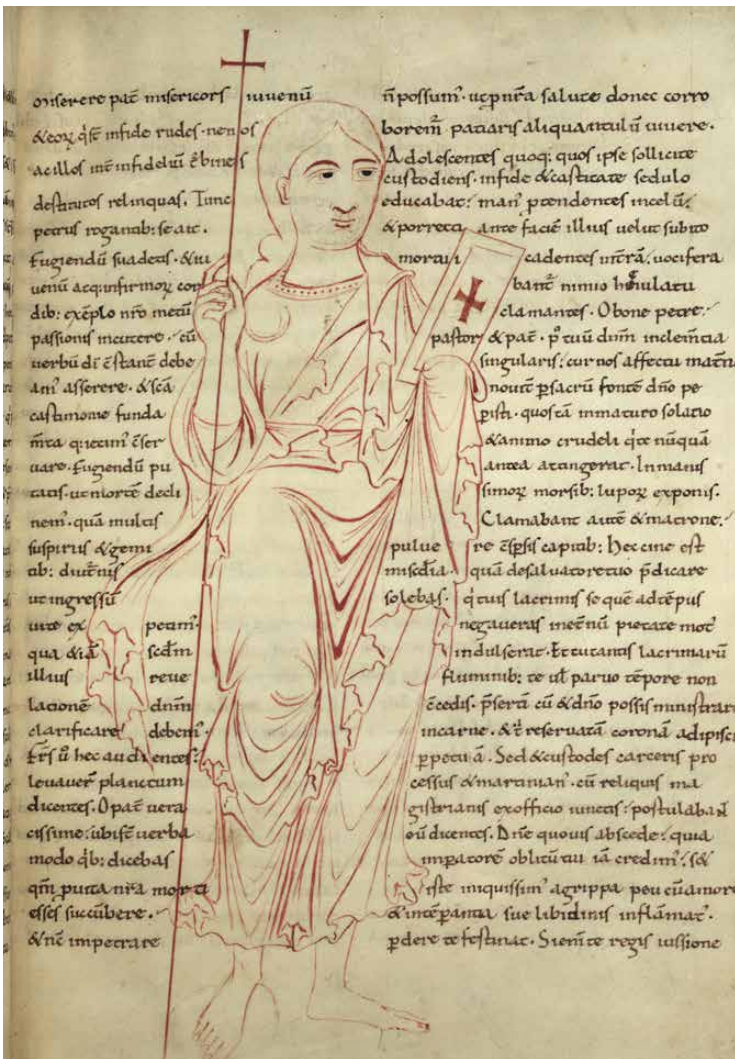 miserere pat̄ misericors iuuenū
&eoꝝ infide rudes· ne nos
ac illos int̄ infideliū
destitutos relinquas. Tunc
petrus rogantib: se ait.
Fugiendū suadetis· & iu
uenū ac q; infirmoꝝ cor
dib: exēplo nr̄o metū
passionis incutere· cū
uerbū dī c̄stant̄ debe
am' asserere· & scā
castimonie funda
m̄ta quietim' c̄ser
uare. Fugiendū pu
tatis· ut morte decli
nem'· quā multis
suspiriis & gemi
tib: diut̄niis
ut ingressū
uite ex petim'·
qua & iā scd̄m
illius reue
lationē dnm̄
clarificare debem'.
Fr̄s ū hec audientes:
leuauer̄ planctum
dicentes. O pat̄ uera
cissime: ubi st̄ uerba
modo q̇b: dicebas
qm̄ p uita nr̄a morti
esses succūbere.
& nē impetrare
n̄ possum'· ut p nr̄a salute donec corro
borem̄ patiaris aliquantulū uiuere.
Adolescentes quoq: quos ipse sollicite
custodiens· in fide & castitate sedulo
educabat: man' p̄tendentes in celū:
& porrecti ante faciē illius uelut subito
mortui cadentes in t̄rā: uocifera
bant̄ nimio heiulatu
clamantes. O bone petre:
pastor & pat̄· p' tuū dnm̄ inclem̄tia
singularis: cur nos affectu mat̄n
nouit ꝑ sacrū fontē dn̄o pe
ꝑisti· quos tā inmaturo solatio
& animo crudeli q̇ te nūquā
antea atingerat. Inmanis
simoꝝ morsib: lupoꝝ exponis.
Clamabant autē & matrone:
puluere c̄sꝑsis capitib: Heccine est
misc̄dia· quā de saluatore tuo p̄dicare
solebas· q̇ tuis lacrimis se quē ad tēpus
negaueras in et̄nū pietate mot'
indulserat. Et tu tantis lacrimarū
fluminib: te ul' paruo tēpore non
c̄cedis· p̄sertī cū & dn̄o possis ministrare
in carne· & t̄ reseruatā coronā adipisci
ꝑpetuā. Sed & custodes carceris pro
cessus & martinian'· cū reliquis ma
gistrianis ex officio iunctis: postulabant
eū dicentes. Dn̄e quouis abscede: quia
imꝑatorē oblitū tui iā credim'· sed
iste iniquissim' agrippa peū cū amore
& intēꝑantia sue libidinis inflāmat'·
ꝑdere te festinat. Si enī te regis iussione